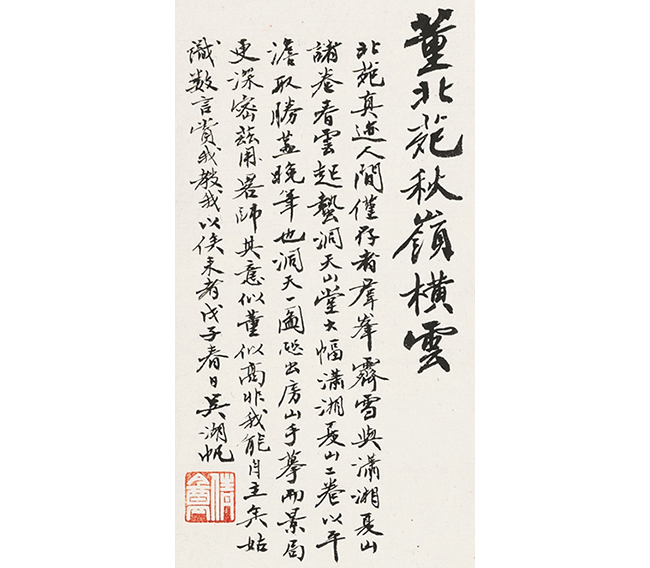 董北苑秋嶺橫雲
北苑真迹人間僅存者羣峯霽雪與瀟湘夏山
諸卷春雲起蟄洞天山堂大幅瀟湘夏山二卷以平
澹取勝蓋晚筆也洞天一圖恐出房山手摹而景局
更深密茲用畧師其意似董似高非我能自主矣姑
識数言賞我教我以俟来者戊子春日吳湖帆